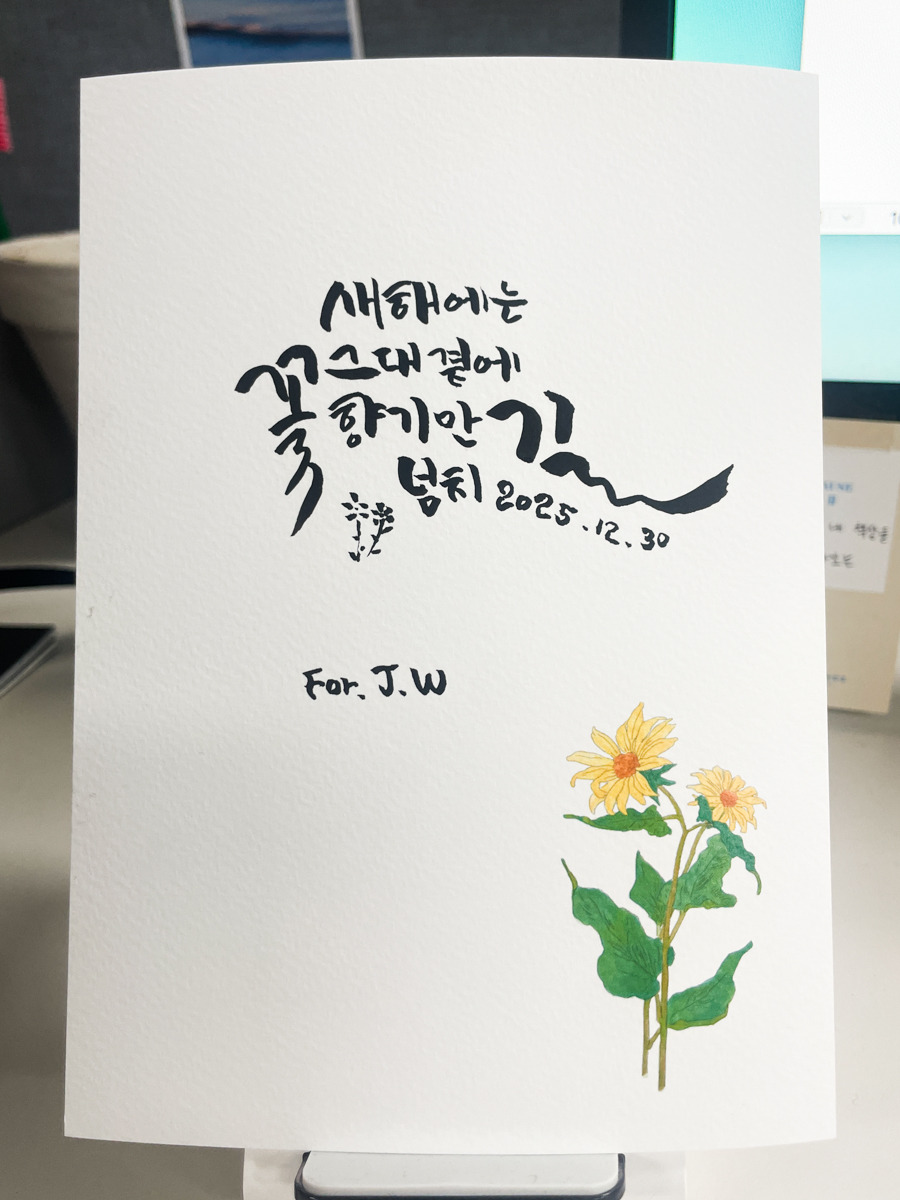 새해에는
그대 곁에
꽃 향기만
넘치길
2025.12.30
For. J.W